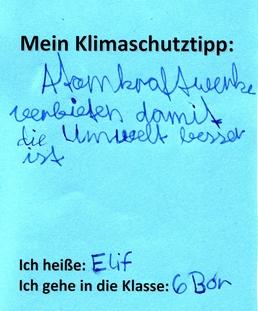 Mein Klimaschutztipp:
Atomkraftwerke
verbieten damit
die Umwelt besser
ist
Ich heiße: Elif
Ich gehe in die Klasse: 6 Bor